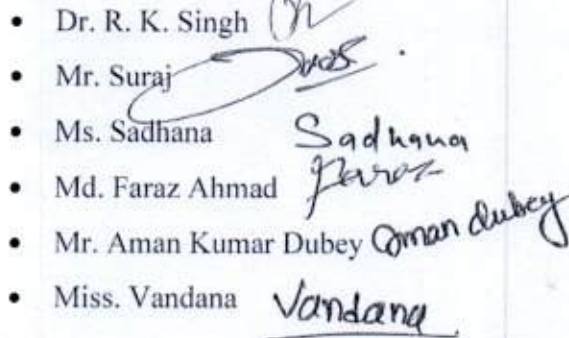 • Dr. R. K. Singh
• Mr. Suraj
• Ms. Sadhana Sadhana
• Md. Faraz Ahmad Faraz
• Mr. Aman Kumar Dubey Aman dubey
• Miss. Vandana Vandana